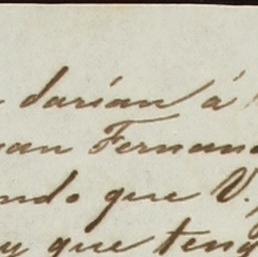 darían á
Fernan
ndo que V.
y que teng